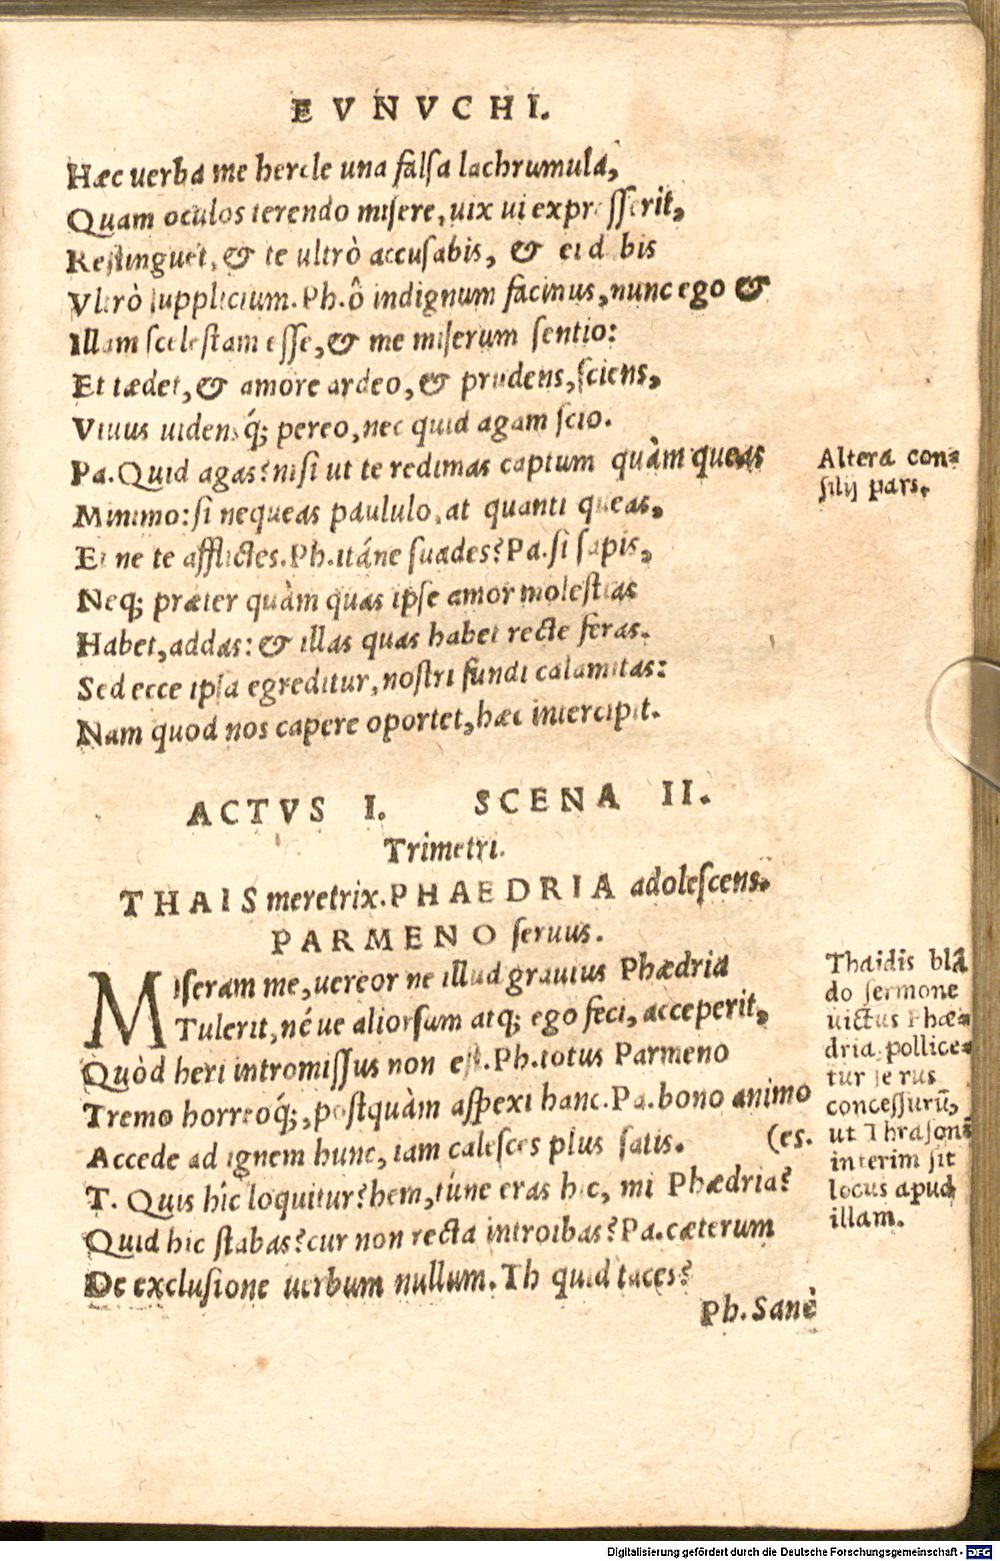 EVNVCHI.
Hæc uerba me hercle una falsa lachrumula,
Quam oculos terendo misere, uix ui expresserit,
Restinguet, & te ultrò accusabis, & ei dabis
Vltrò supplicium. Ph. ô indignum facinus, nunc ego &
Illam scelestam esse, & me miserum sentio:
Et tædet, & amore ardeo, & prudens, sciens,
Viuus uidensq́; pereo, nec quid agam scio.
Pa. Quid agas? nisi ut te redimas captum quàm queas
Minimo: si nequeas paululo, at quanti queas,
Et ne te afflictes. Ph. itáne suades? Pa. si sapis,
Neq; præter quàm quas ipse amor molestias
Habet, addas: & illas quas habet recte feras.
Sed ecce ipsa egreditur, nostri fundi calamitas:
Nam quod nos capere oportet, hæc intercipit.
Altera con=
silij pars.
ACTVS I. SCENA II.
Trimetri.
THAIS meretrix. PHAEDRIA adolescens.
PARMENO seruus.
Miseram me, uereor ne illud grauius Phædria
Tulerit, né ue aliorsum atq; ego feci, acceperit,
Quòd heri intromissus non est. Ph. totus Parmeno
Tremo horreoq́;, postquàm aspexi hanc. Pa. bono animo
Accede ad ignem hunc, iam calesces plus satis. (es.
T. Quis hîc loquitur? hem, túne eras hic, mi Phædria?
Quid hic stabas? cur non recta introibas? Pa. cæterum
De exclusione uerbum nullum. Th quid taces?
Ph. Sanè
Thaidis blã
do sermone
uictus Phæ=
dria, pollice=
tur se rus
concessurũ,
ut Thrasoni
interim sit
locus apud
illam.
Digitalisierung gefördert durch die Deutsche Forschungsgemeinschaft - DFG